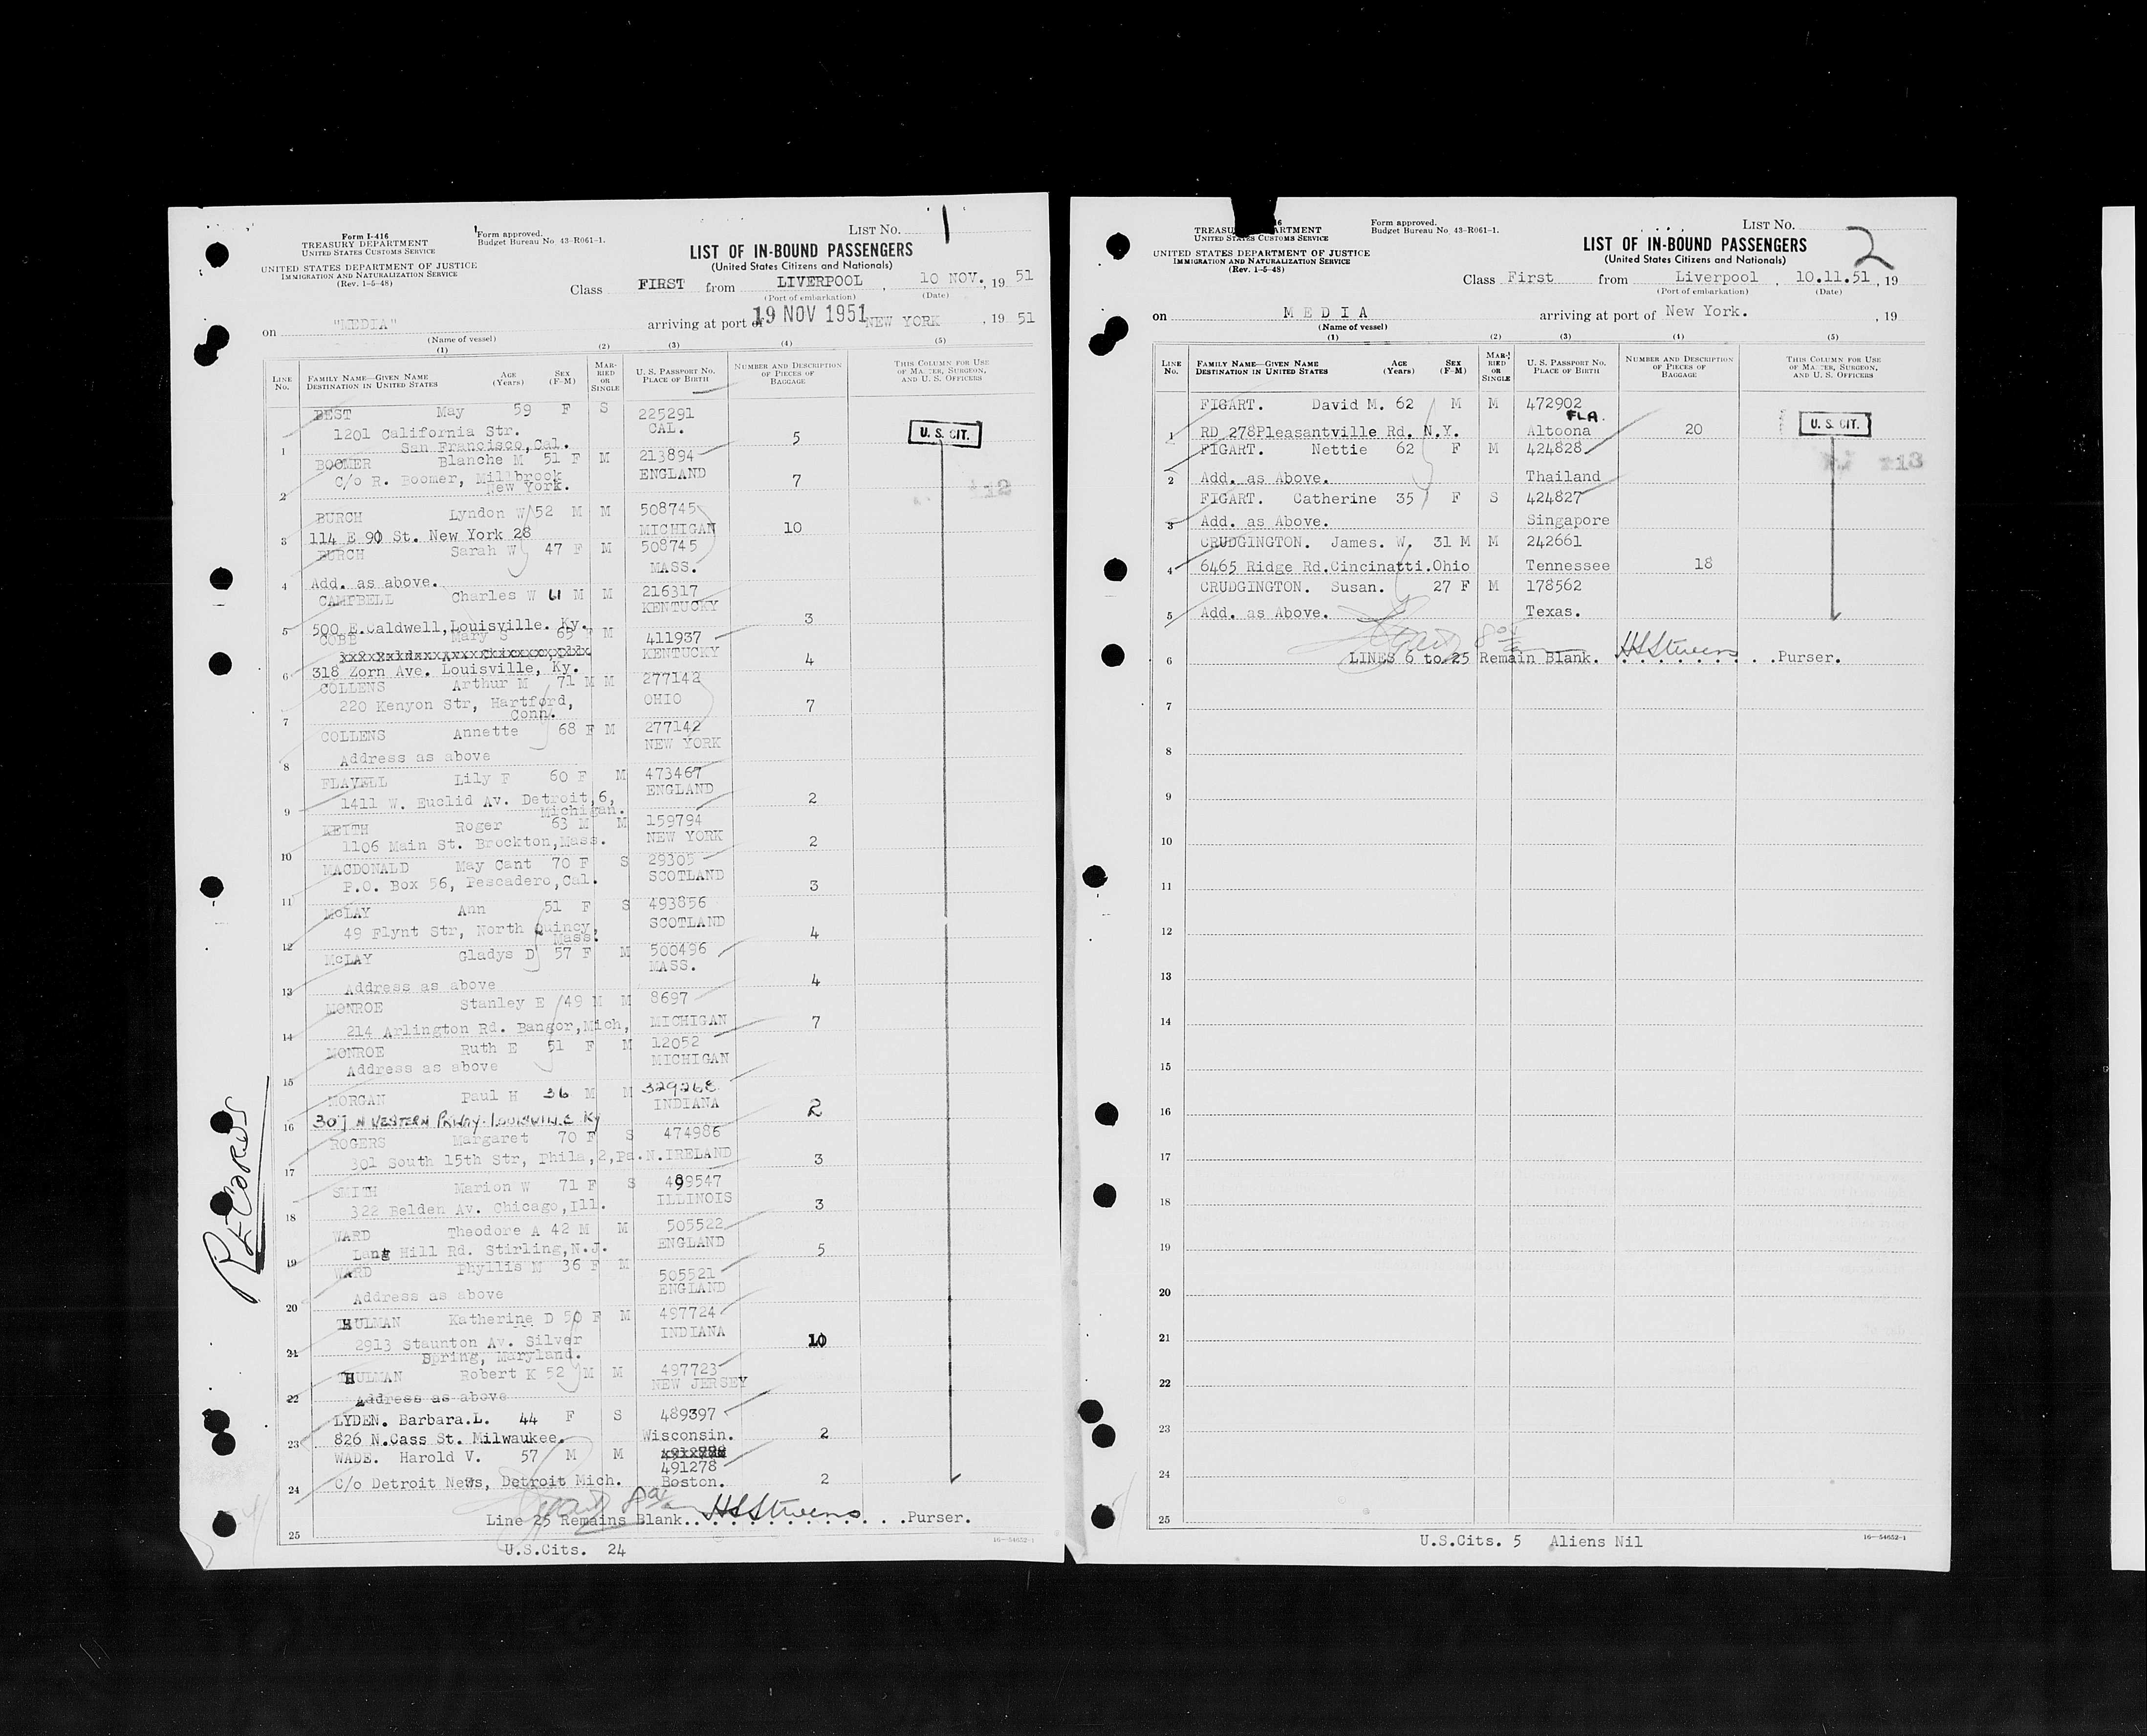 Form I-416
TREASURY DEPARTMENT
UNITED STATES CUSTOMS SERVICE
UNITED STATES DEPARTMENT OF JUSTICE
IMMIGRATION AND NATURALIZATION SERVICE
(Rev. 1-5-48)
Form approved.
Budget Bureau No. 43-R061-1.
LIST NO. 1
LIST OF IN-BOUND PASSENGERS
(United States Citizens and Nationals)
Class FIRST from LIVERPOOL , 10 NOV. , 19 51
(Port of embarkation) (Date)
on "MEDIA" arriving at port of 19 NOV 1951 NEW YORK , 19 51
(Name of vessel)
(1) (2) (3) (4) (5)
LINE No. FAMILY NAME—GIVEN NAME DESTINATION IN UNITED STATES AGE (Years) SEX (F-M) MARRIED OR SINGLE U. S. PASSPORT NO. PLACE OF BIRTH NUMBER AND DESCRIPTION OF PIECES OF BAGGAGE THIS COLUMN FOR USE OF MASTER, SURGEON, AND U. S. OFFICERS
BEST May 59 F S 225291
1201 California Str. CAL.
1 San Francisco, Cal. 5 U. S. CIT.
BOOMER Blanche M 51 F M 213894
C/o R. Boomer, Millbrook ENGLAND
2 New York. 7
BURCH Lyndon W 52 M M 508745
3 114 E 90 St. New York 28 MICHIGAN 10
BURCH Sarah W 47 F M 508745
4 Add. as above. MASS.
CAMPBELL Charles W 61 M M 216317
KENTUCKY
5 500 E.Caldwell,Louisville. Ky. 3
COBE Mary S 65 F M 411937
KENTUCKY
6 318 Zorn Ave. Louisville, Ky. 4
COLLENS Arthur M 71 M M 277142
220 Kenyon Str, Hartford, OHIO
7 Conn. 7
COLLENS Annette 68 F M 277142
NEW YORK
8 Address as above
FLAVELL Lily F 60 F M 473467
1411 W. Euclid Av. Detroit,6, ENGLAND
9 Michigan. 2
KEITH Roger 63 M M 159794
10 1106 Main St. Brockton,Mass. NEW YORK 2
MACDONALD May Cant 70 F S 29305
11 P.O. Box 56, Pescadero,Cal. SCOTLAND 3
McLAY Ann 51 F S 493856
49 Flynt Str, North Quincy, SCOTLAND
12 Mass. 4
McLAY Gladys D 57 F M 500496
MASS.
13 Address as above 4
MONROE Stanley E 49 M M 8697
14 214 Arlington Rd. Bangor,Mich, MICHIGAN 7
MONROE Ruth E 51 F M 12052
15 Address as above MICHIGAN
MORGAN Paul H 36 M M 329268
INDIANA
16 307 N WESTERN PKWAY. LOUISVILLE KY 2
ROGERS Margaret 70 F S 474986
17 301 South 15th Str, Phila,2,Pa. N.IRELAND 3
SMITH Marion W 71 F S 499547
18 322 Belden Av. Chicago,Ill. ILLINOIS 3
WARD Theodore A 42 M M 505522
19 Lang Hill Rd. Stirling,N.J. ENGLAND 5
WARD Phyllis M 36 F M 505521
ENGLAND
20 Address as above
HULMAN Katherine D 50 F M 497724
2913 Staunton Av. Silver INDIANA
21 Spring, Maryland. 10
HULMAN Robert K 52 M M 497723
22 Address as above NEW JERSEY
LYDEN. Barbara.L. 44 F S 489397
23 826 N.Cass St. Milwaukee. Wisconsin. 2
WADE. Harold V. 57 M M
491278
24 C/o Detroit News, Detroit Mich. Boston. 2
25 Line 25 Remains Blank. HSStevens Purser.
U.S.Cits. 24
16—54652-1
RECORDS
Form approved.
Budget Bureau No. 43-R061-1.
UNITED STATES CUSTOMS SERVICE
UNITED STATES DEPARTMENT OF JUSTICE
IMMIGRATION AND NATURALIZATION SERVICE
(Rev. 1-5-48)
LIST NO. 2
LIST OF IN-BOUND PASSENGERS
(United States Citizens and Nationals)
Class First from Liverpool , 10.11.51 , 19
(Port of embarkation) (Date)
on MEDIA arriving at port of New York. , 19
(Name of vessel)
(1) (2) (3) (4) (5)
LINE No. FAMILY NAME—GIVEN NAME DESTINATION IN UNITED STATES AGE (Years) SEX (F-M) MARRIED OR SINGLE U. S. PASSPORT NO. PLACE OF BIRTH NUMBER AND DESCRIPTION OF PIECES OF BAGGAGE THIS COLUMN FOR USE OF MASTER, SURGEON, AND U. S. OFFICERS
FIGART. David M. 62 M M 472902
FLA.
1 RD 278Pleasantville Rd. N.Y. Altoona 20 U. S. CIT.
FIGART. Nettie 62 F M 424828
2 Add. as Above. Thailand
FIGART. Catherine 35 F S 424827
3 Add. as Above. Singapore
CRUDGINGTON. James. W. 31 M M 242661
4 6465 Ridge Rd.Cincinatti.Ohio Tennessee 18
CRUDGINGTON. Susan. 27 F M 178562
5 Add. as Above. Texas.
6 LINES 6 to 25 Remain Blank. HSStevens Purser.
7
8
9
10
11
12
13
14
15
16
17
18
19
20
21
22
23
24
25
U.S.Cits. 5 Aliens Nil
16—54652-1